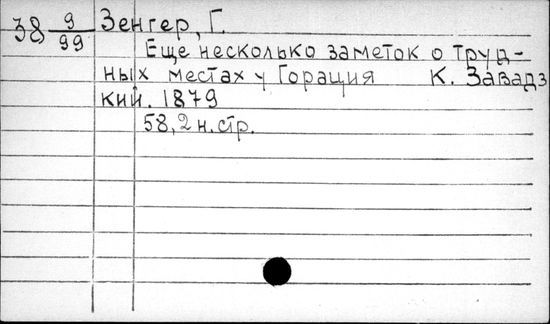 38 9/99 Зенгер, Г.
Еще несколько заметок о труд-
ных местах у Горация К. Завадз
кий. 1879
58, 2 н. стр.